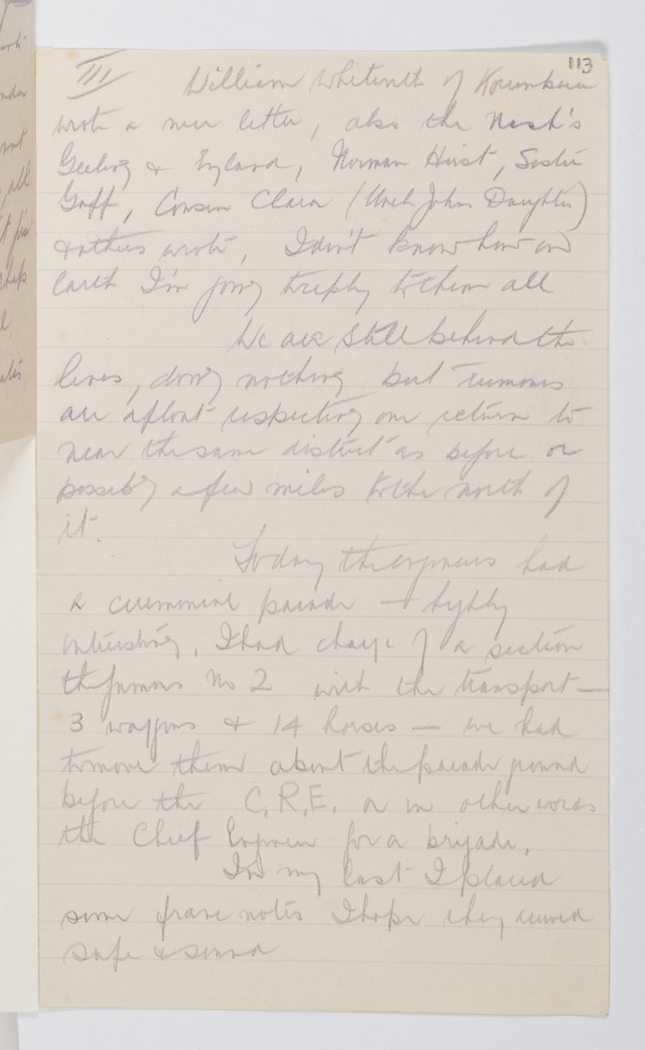 113
III William Whitenth of Koumbaia
wrote a nice letter, also the Nash's
Geelong & England, Norman Hirst, Sister
Goff, Cousin Clara (Uncle John Daughter)
& others wrote, I don't know how on
earth I'm going to reply to them all
We are still behind the
lines, doing nothing but rumours
are afloat respecting our return to
near the same district as before or
possibly a few miles to the north of
it.
Today the engineers had
a ceremonial parade — highly
interesting, I had charge of a section
the famous No 2 with the transport —
3 waggons & 14 horses — we had
to move them about the parade ground
before the C.R.E. or in other words
the Chief Engineer for a brigade.
In my last I placed
some franc notes I hope they arrived
safe & sound